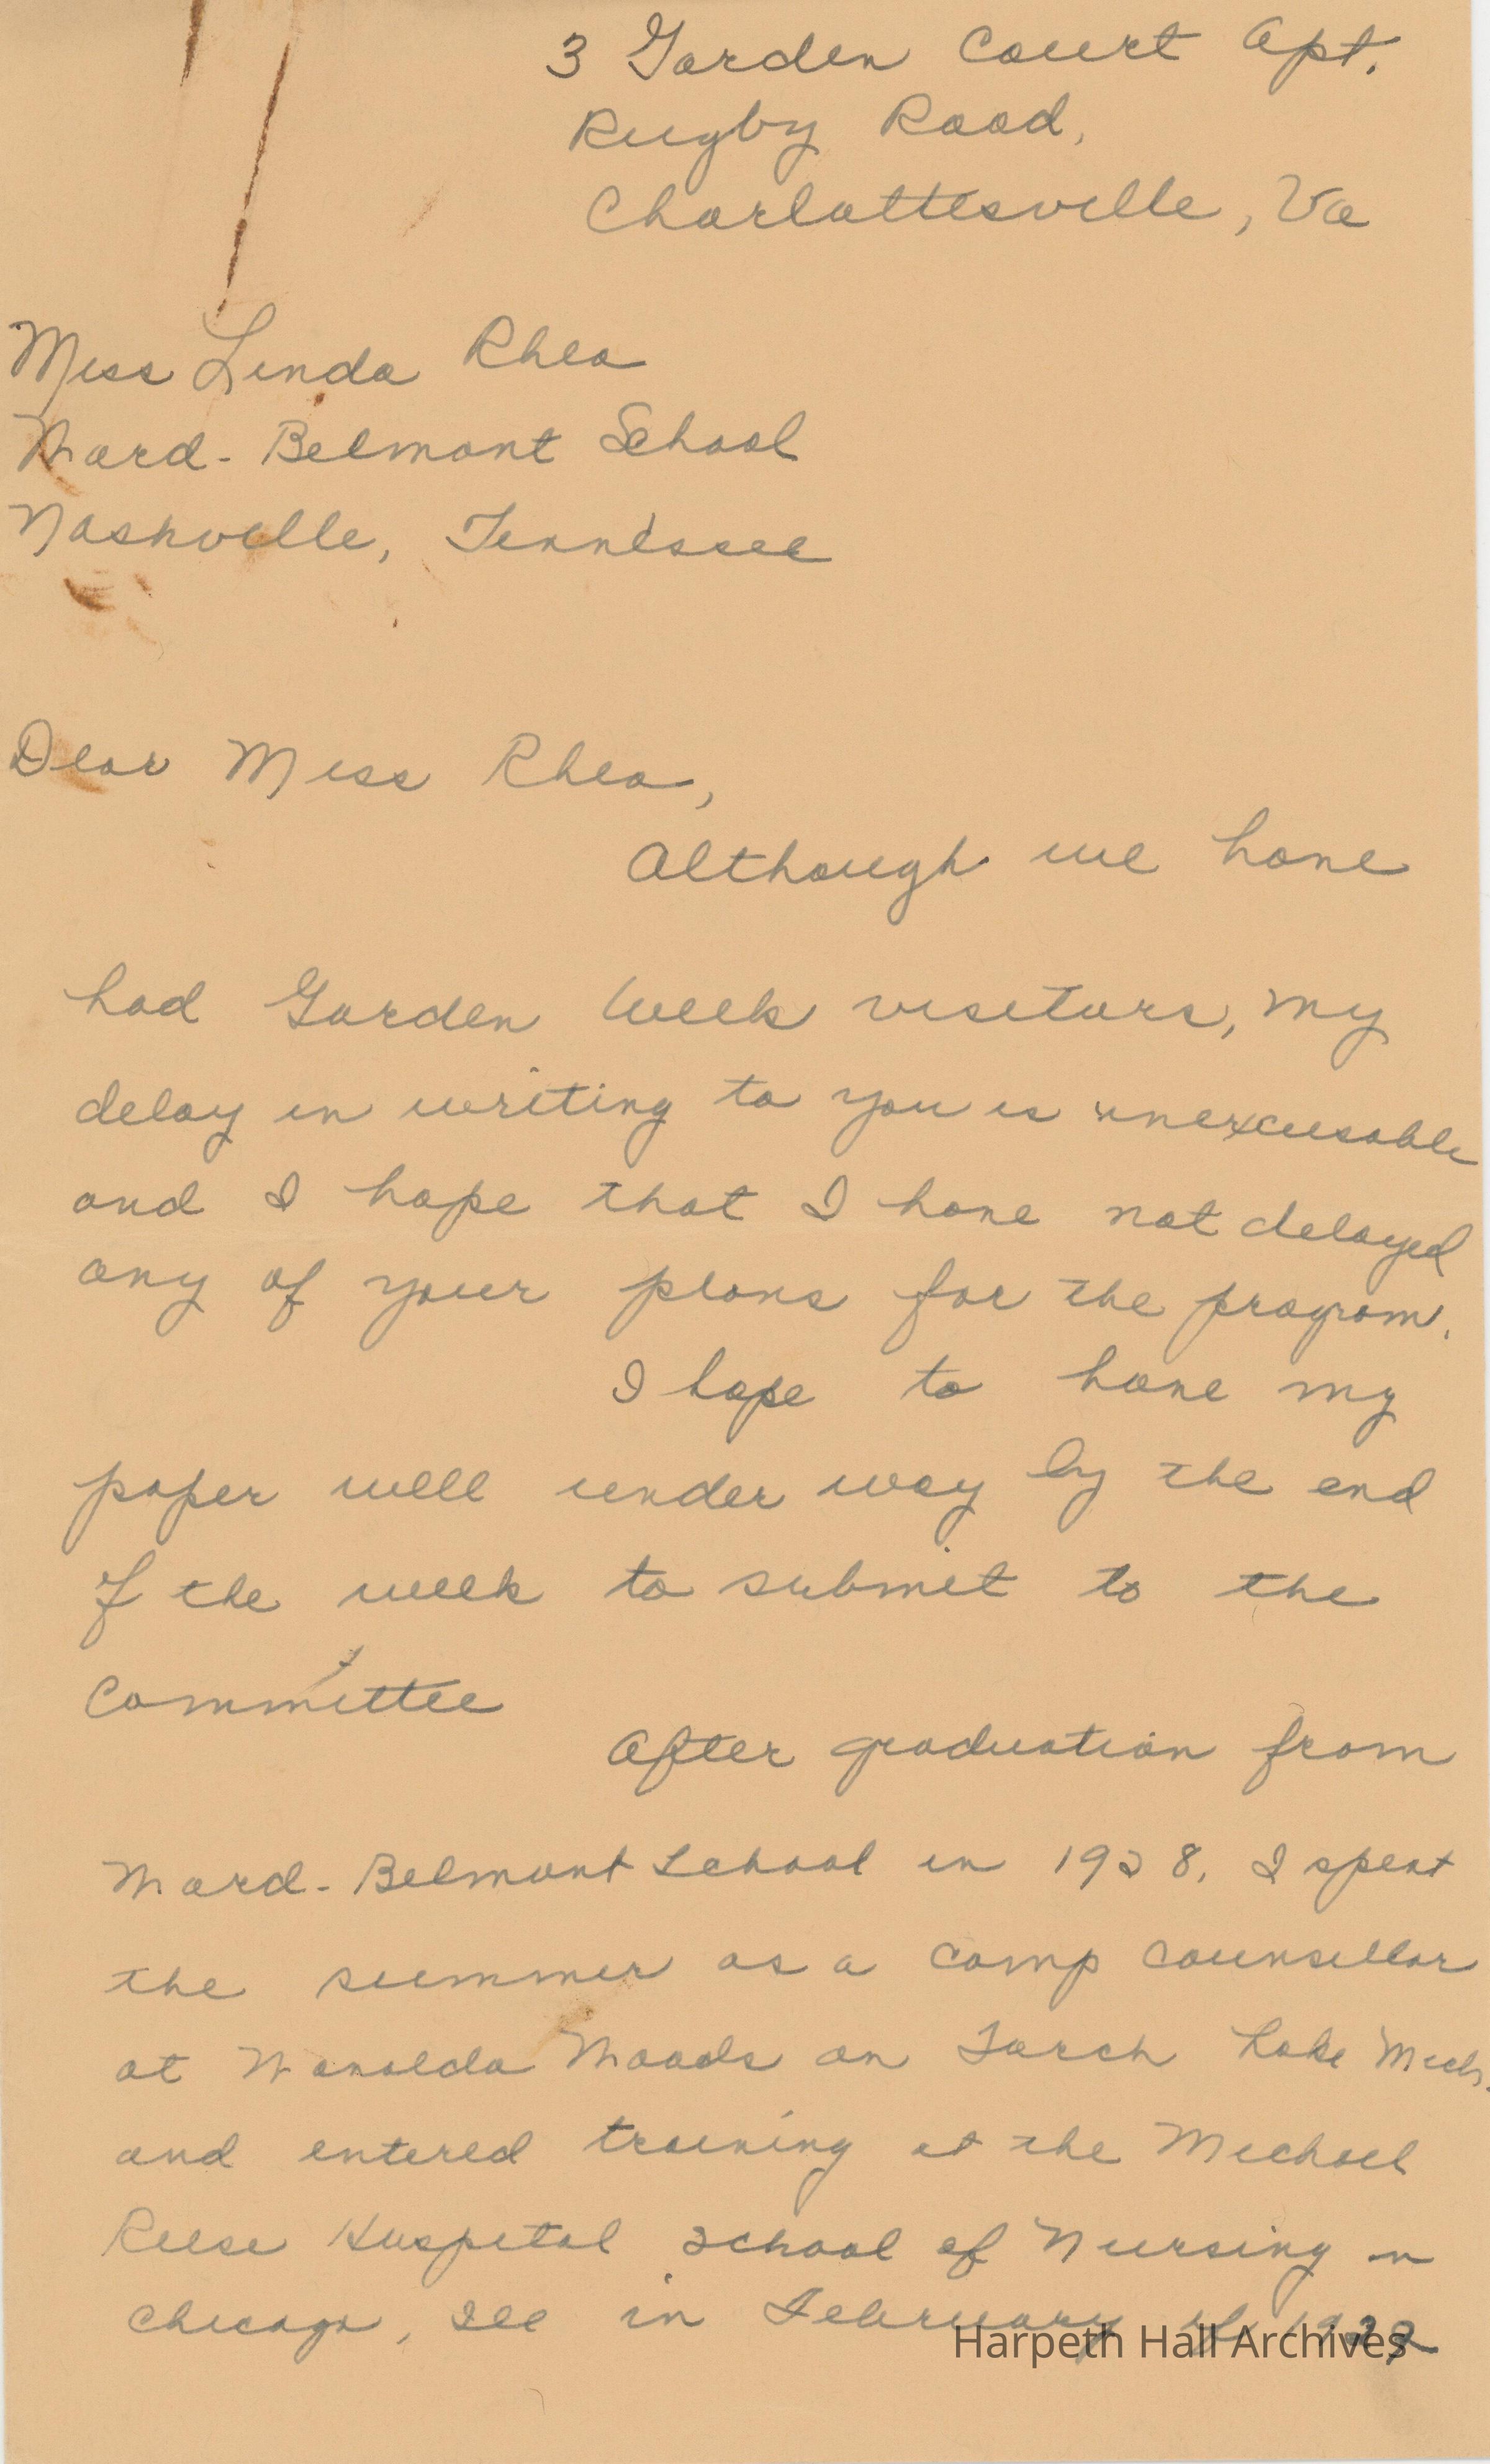 3 Garden Court Apt.
Rugby Road,
Charlottesville, Va
Miss Linda Rhea
Ward-Belmont School
Nashville, Tennessee
Dear Miss Rhea,
Although we have
had Garden Week visitors, my
delay in writing to you is unexcusable
and I hope that I have not delayed
any of your plans for the program.
I hope to have my
paper well under way by the end
of the week to submit to the
Committee
After graduation from
Ward-Belmont School in 1928, I spent
the summer as a camp counsellor
at Woods on Torch Lake Mich.
and entered training at the Michael
Reese Hospital School of Nursing in
Chicago, Ill in February of
Harpeth Hall Archives